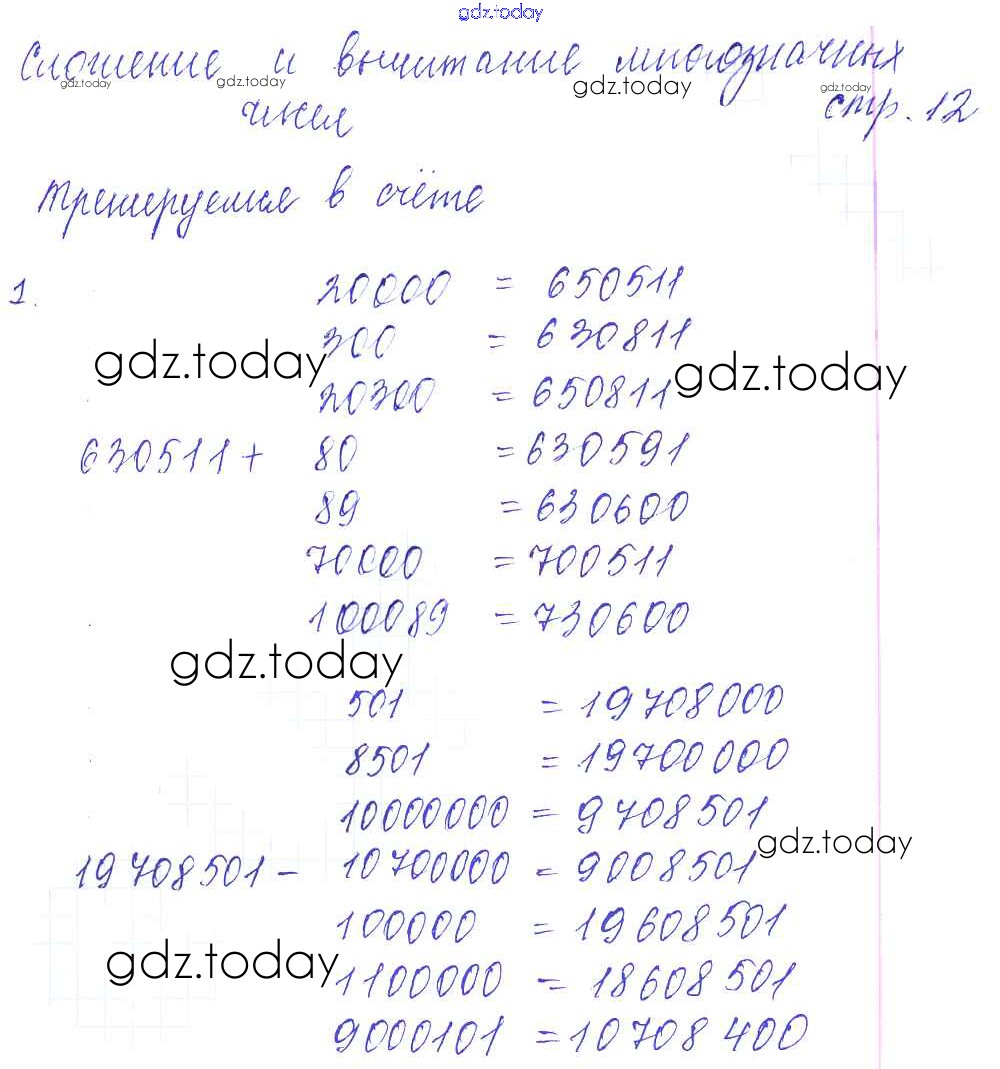 gdz.today
Сложение и вычитание многозначных
gdz.today gdz.today gdz.today gdz.today
чисел стр. 12
Тренируемся в счёте
1. 20000 = 650511
300 = 630811
gdz.today gdz.today
20300 = 650811
630511 + 80 = 630591
89 = 630600
70000 = 700511
100089 = 730600
gdz.today
501 = 19708000
8501 = 19700000
10000000 = 9708501
gdz.today
19708501 - 10700000 = 9008501
100000 = 19608501
gdz.today
1100000 = 18608501
9000101 = 10708400